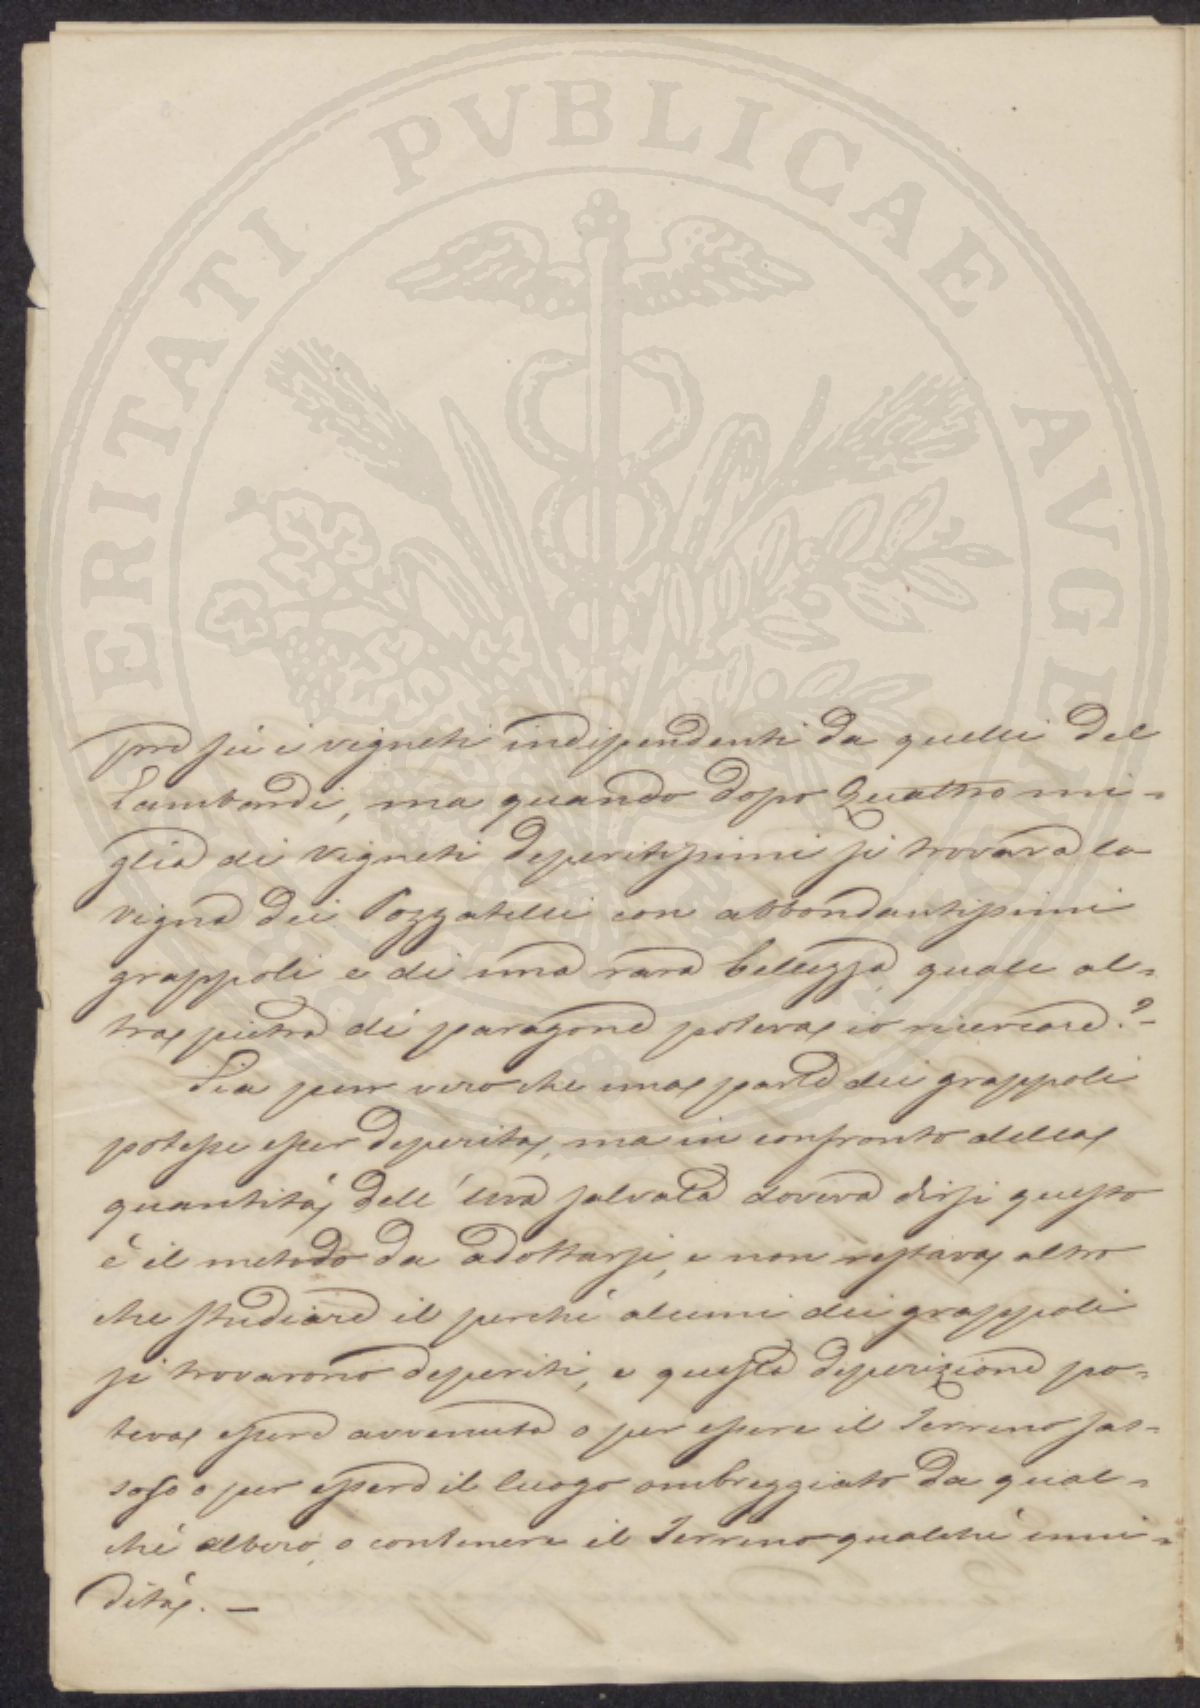 PVBLICAE
ERITATI
AVGE
pre fù i vigneti indipendenti da quelli del
Lambardi, ma quando dopo Quattro mi=
glia di vigneti deperitissimi si trovava la
vigna dei Pozzatelli con abbondantissimi
grappoli e di una rara bellezza, quale al=
tra pietra di paragone poteva io ricercare?-
Sia pur vero che una parte dei grappoli
potesse esser deperita, ma in confronto della
quantità dell'uva salvata doveva dirsi questo
è il metodo da adottarsi, e non restava altro
che studiare il perchè alcuni dei grappoli
si trovarono deperiti, e questa deperizione po=
teva essere avvenuta o per essere il Terreno sas=
soso o per essere il luogo ombreggiato da qual=
chè albero, o contenere il Terreno qualchè umi=
dità. —